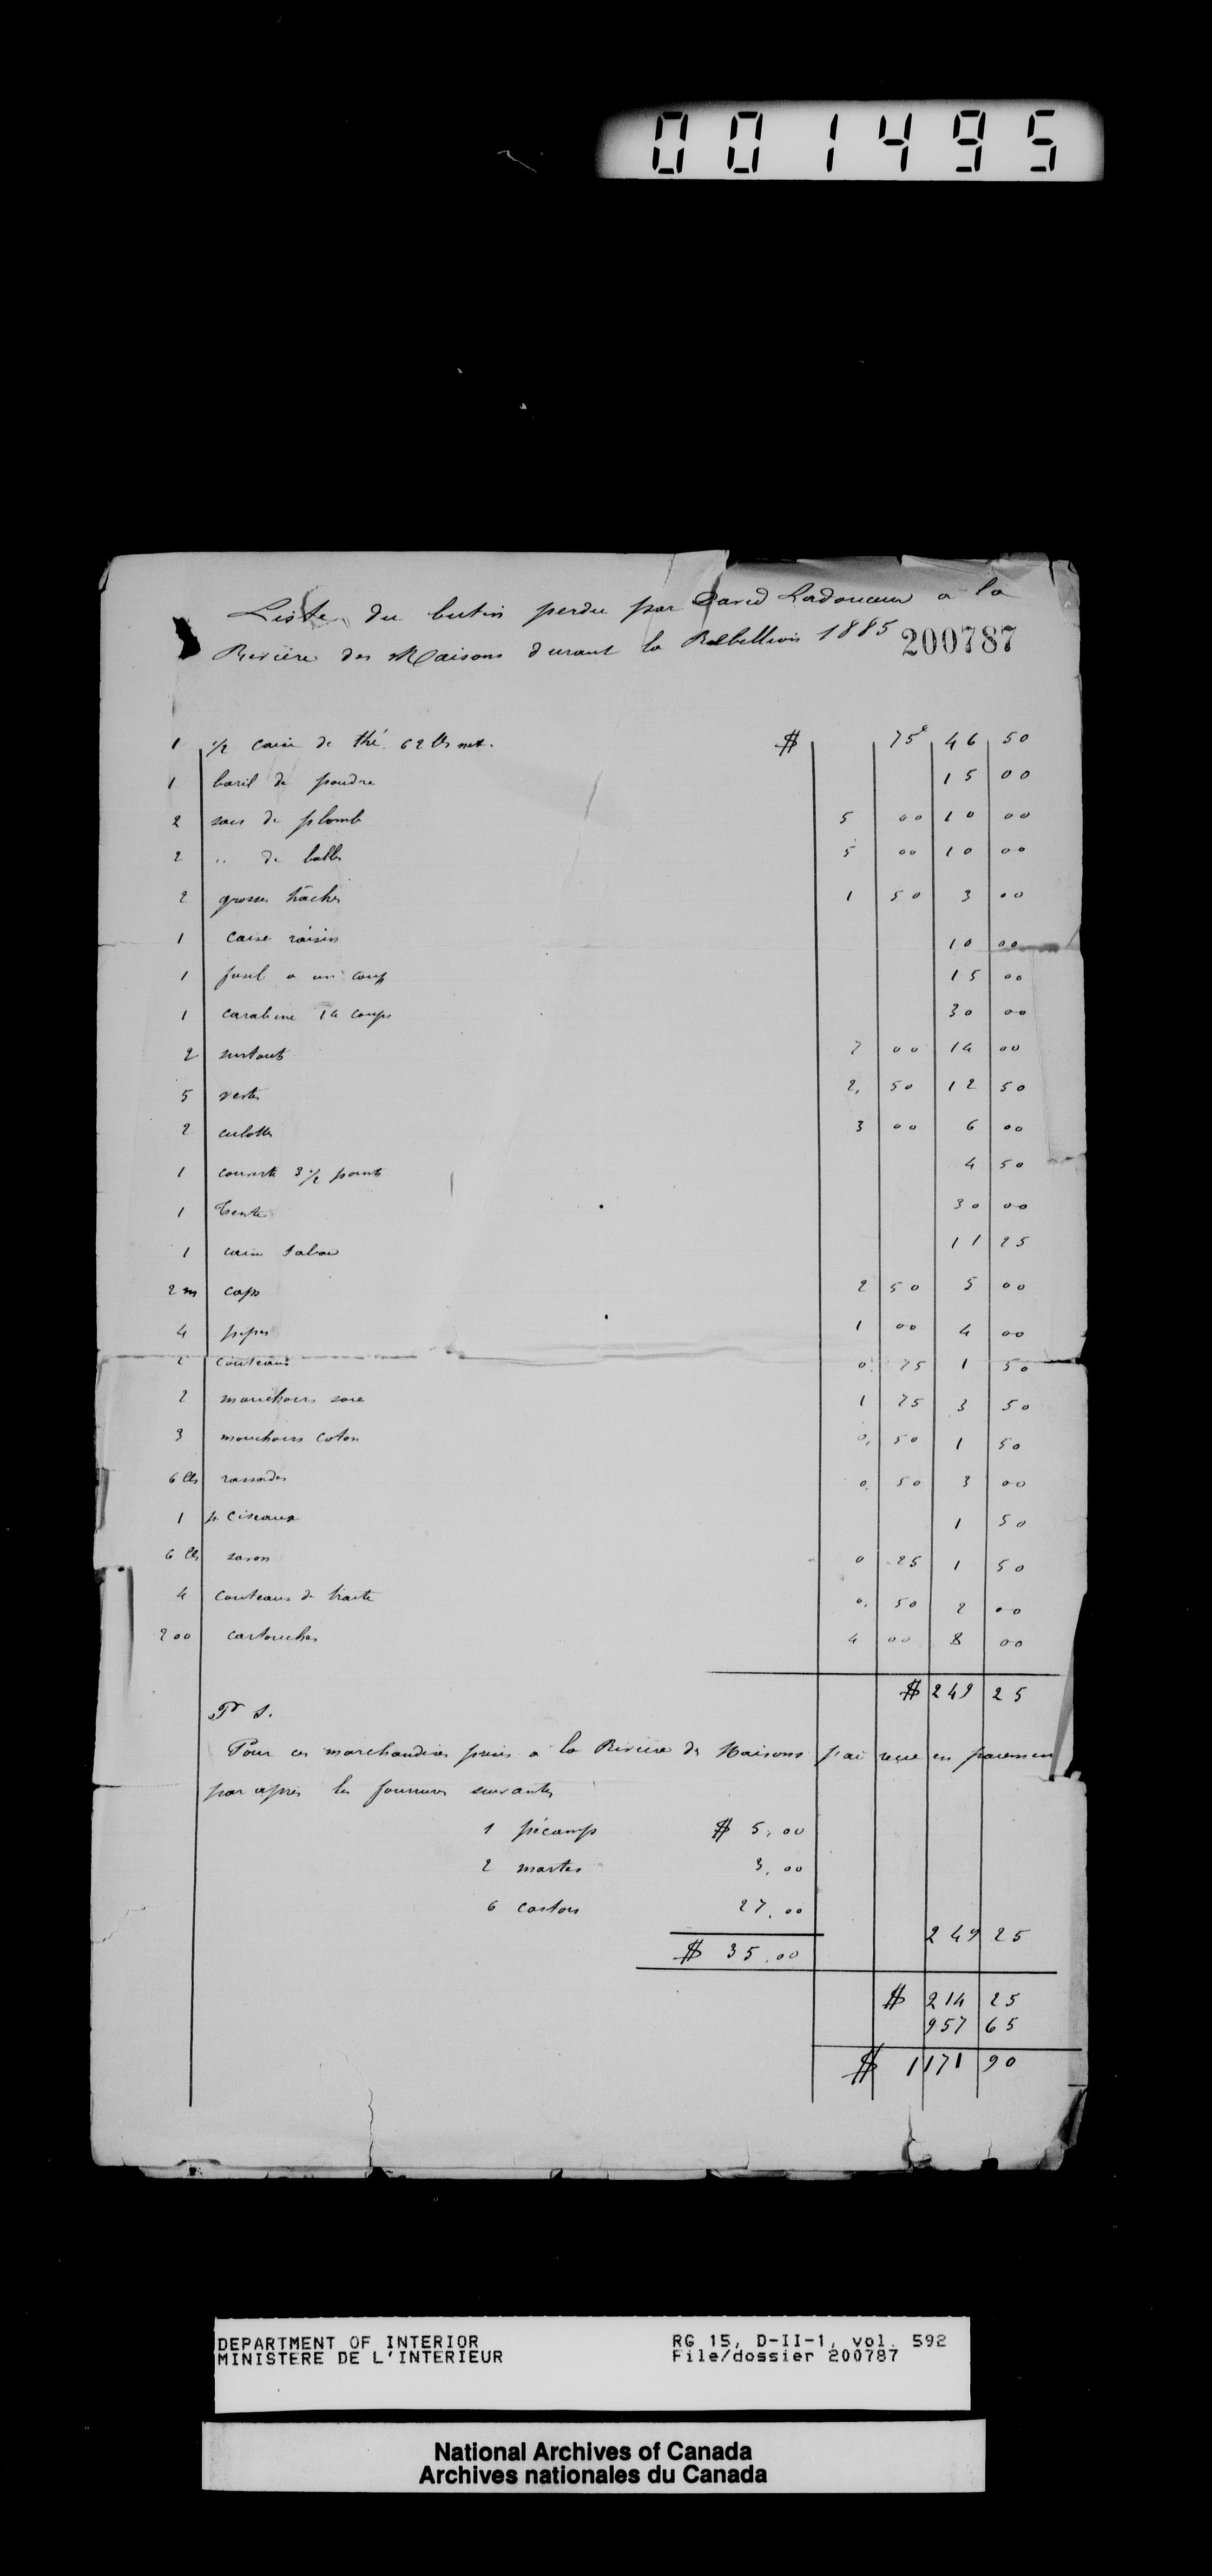 001495
Liste du butin perdu par David Ladouceur a la
Rivière des Maisons durant la Rebellion 1885 200787
1 1/2 caise de thé. 62 lbs net. $ 75c 46 50
1 baril de poudre 15 00
2 sacs de plomb 5 00 10 00
2 " de balles 5 00 10 00
2 grosses haches 1 50 3 00
1 caise raisin 10 00
1 fusil a un coup 15 00
1 carabine 14 coups 30 00
2 surtouts 7 00 14 00
5 vestes 2, 50 12 50
2 culottes 3 00 6 00
1 couverte 3 1/2 points 4 50
1 Tente 30 00
1 caise 11 25
2 m caps 2 50 5 00
4 pipes 1 00 4 00
2 couteaux 0. 75 1 50
2 mouchoirs soie 1 75 3 50
3 mouchoirs coton 0, 50 1 50
6 lbs rassades 0. 50 3 00
1 p. Ciseaux 1 50
6 lbs savon 0 25 1 50
4 couteaux de traite 0. 50 2 00
200 cartouches 4 00 8 00
$ 249 25
P S.
Pour ces marchandises prises a la Rivière des Maisons j'ai reçu en paiement
par après les fourrures suivantes
1 pécamp $ 5,00
2 martes 3,00
6 castors 27,00
249 25
$ 35,00
$ 214 25
957 65
$ 1171 90
DEPARTMENT OF INTERIOR RG 15, D-II-1, vol. 592
MINISTERE DE L'INTERIEUR File/dossier 200787
National Archives of Canada
Archives nationales du Canada